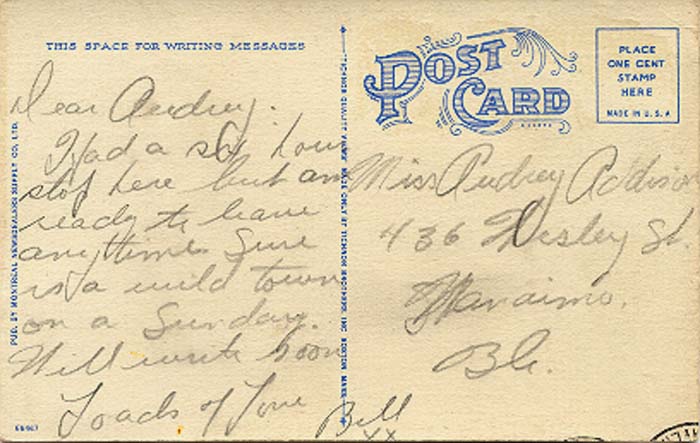 THIS SPACE FOR WRITING MESSAGES
Dear Audrey.
Had a six hour
stop here but am
ready to leave
anytime. Sure
is a wild town
on a Sunday.
Will write soon
Loads of Love
Bill
xx
POST
CARD
PLACE
ONE CENT
STAMP
HERE
MADE IN U.S.A
Miss Audrey Addison
436 Wesley St.
Nanaimo.
B.C.
PUB. BY MONTREAL NEWSDEALERS SUPPLY CO. LTD.
"TICHNOR QUALITY VIEWS," MADE ONLY BY TICHNOR BROTHERS, INC. BOSTON, MASS.